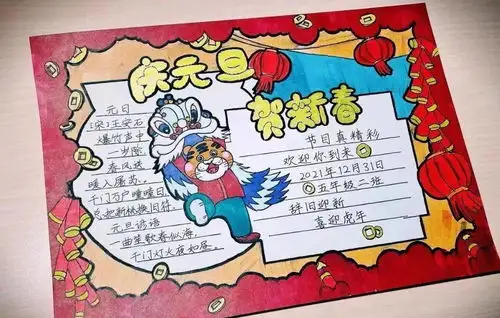 庆元旦
贺新春
元日
[宋]王安石
爆竹声中
一岁除
春风送
暖入屠苏.
千门万户曈曈日
总把新桃换旧符.
元旦谚语
一曲笙歌春似海,
千门灯火夜如昼。
节目真精彩
欢迎你到来
2021年12月31日
五年级二班
辞旧迎新
喜迎虎年